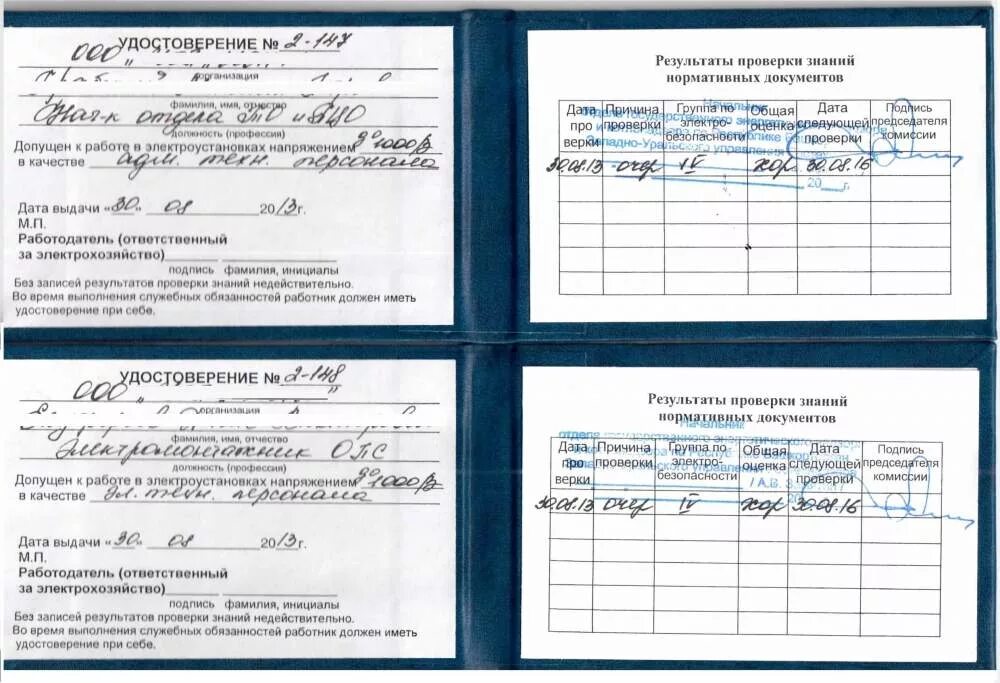 УДОСТОВЕРЕНИЕ № 2-147
ООО "
организация
фамилия, имя, отчество
Нач-к отдела ТО и ПЦО
должность (профессия)
Допущен к работе в электроустановках напряжением до 1000 В
в качестве адм. техн. персонала
Дата выдачи «30» 08 2013 г.
М.П.
Работодатель (ответственный
за электрохозяйство)
подпись фамилия, инициалы
Без записей результатов проверки знаний недействительно.
Во время выполнения служебных обязанностей работник должен иметь
удостоверение при себе.
Результаты проверки знаний
нормативных документов
Начальник
отдела государственного
по Республике
Западно-Уральского управления
20 г.
Дата про верки Причина проверки Группа по электро- безопасности Общая оценка Дата следующей проверки Подпись председателя комиссии
30.08.13 очер IV хор 30.08.16
УДОСТОВЕРЕНИЕ № 2-148
ООО " "
организация
фамилия, имя, отчество
Электромонтажник ОПС
должность (профессия)
Допущен к работе в электроустановках напряжением до 1000 В
в качестве эл. техн. персонала
Дата выдачи «30» 08 2013 г.
М.П.
Работодатель (ответственный
за электрохозяйство)
подпись фамилия, инициалы
Без записей результатов проверки знаний недействительно.
Во время выполнения служебных обязанностей работник должен иметь
удостоверение при себе.
Результаты проверки знаний
нормативных документов
Начальник
отдела государственного энергетического
управления
/ А.В.
20
Дата про верки Причина проверки Группа по электро- безопасности Общая оценка Дата следующей проверки Подпись председателя комиссии
30.08.13 очер IV хор 30.08.16